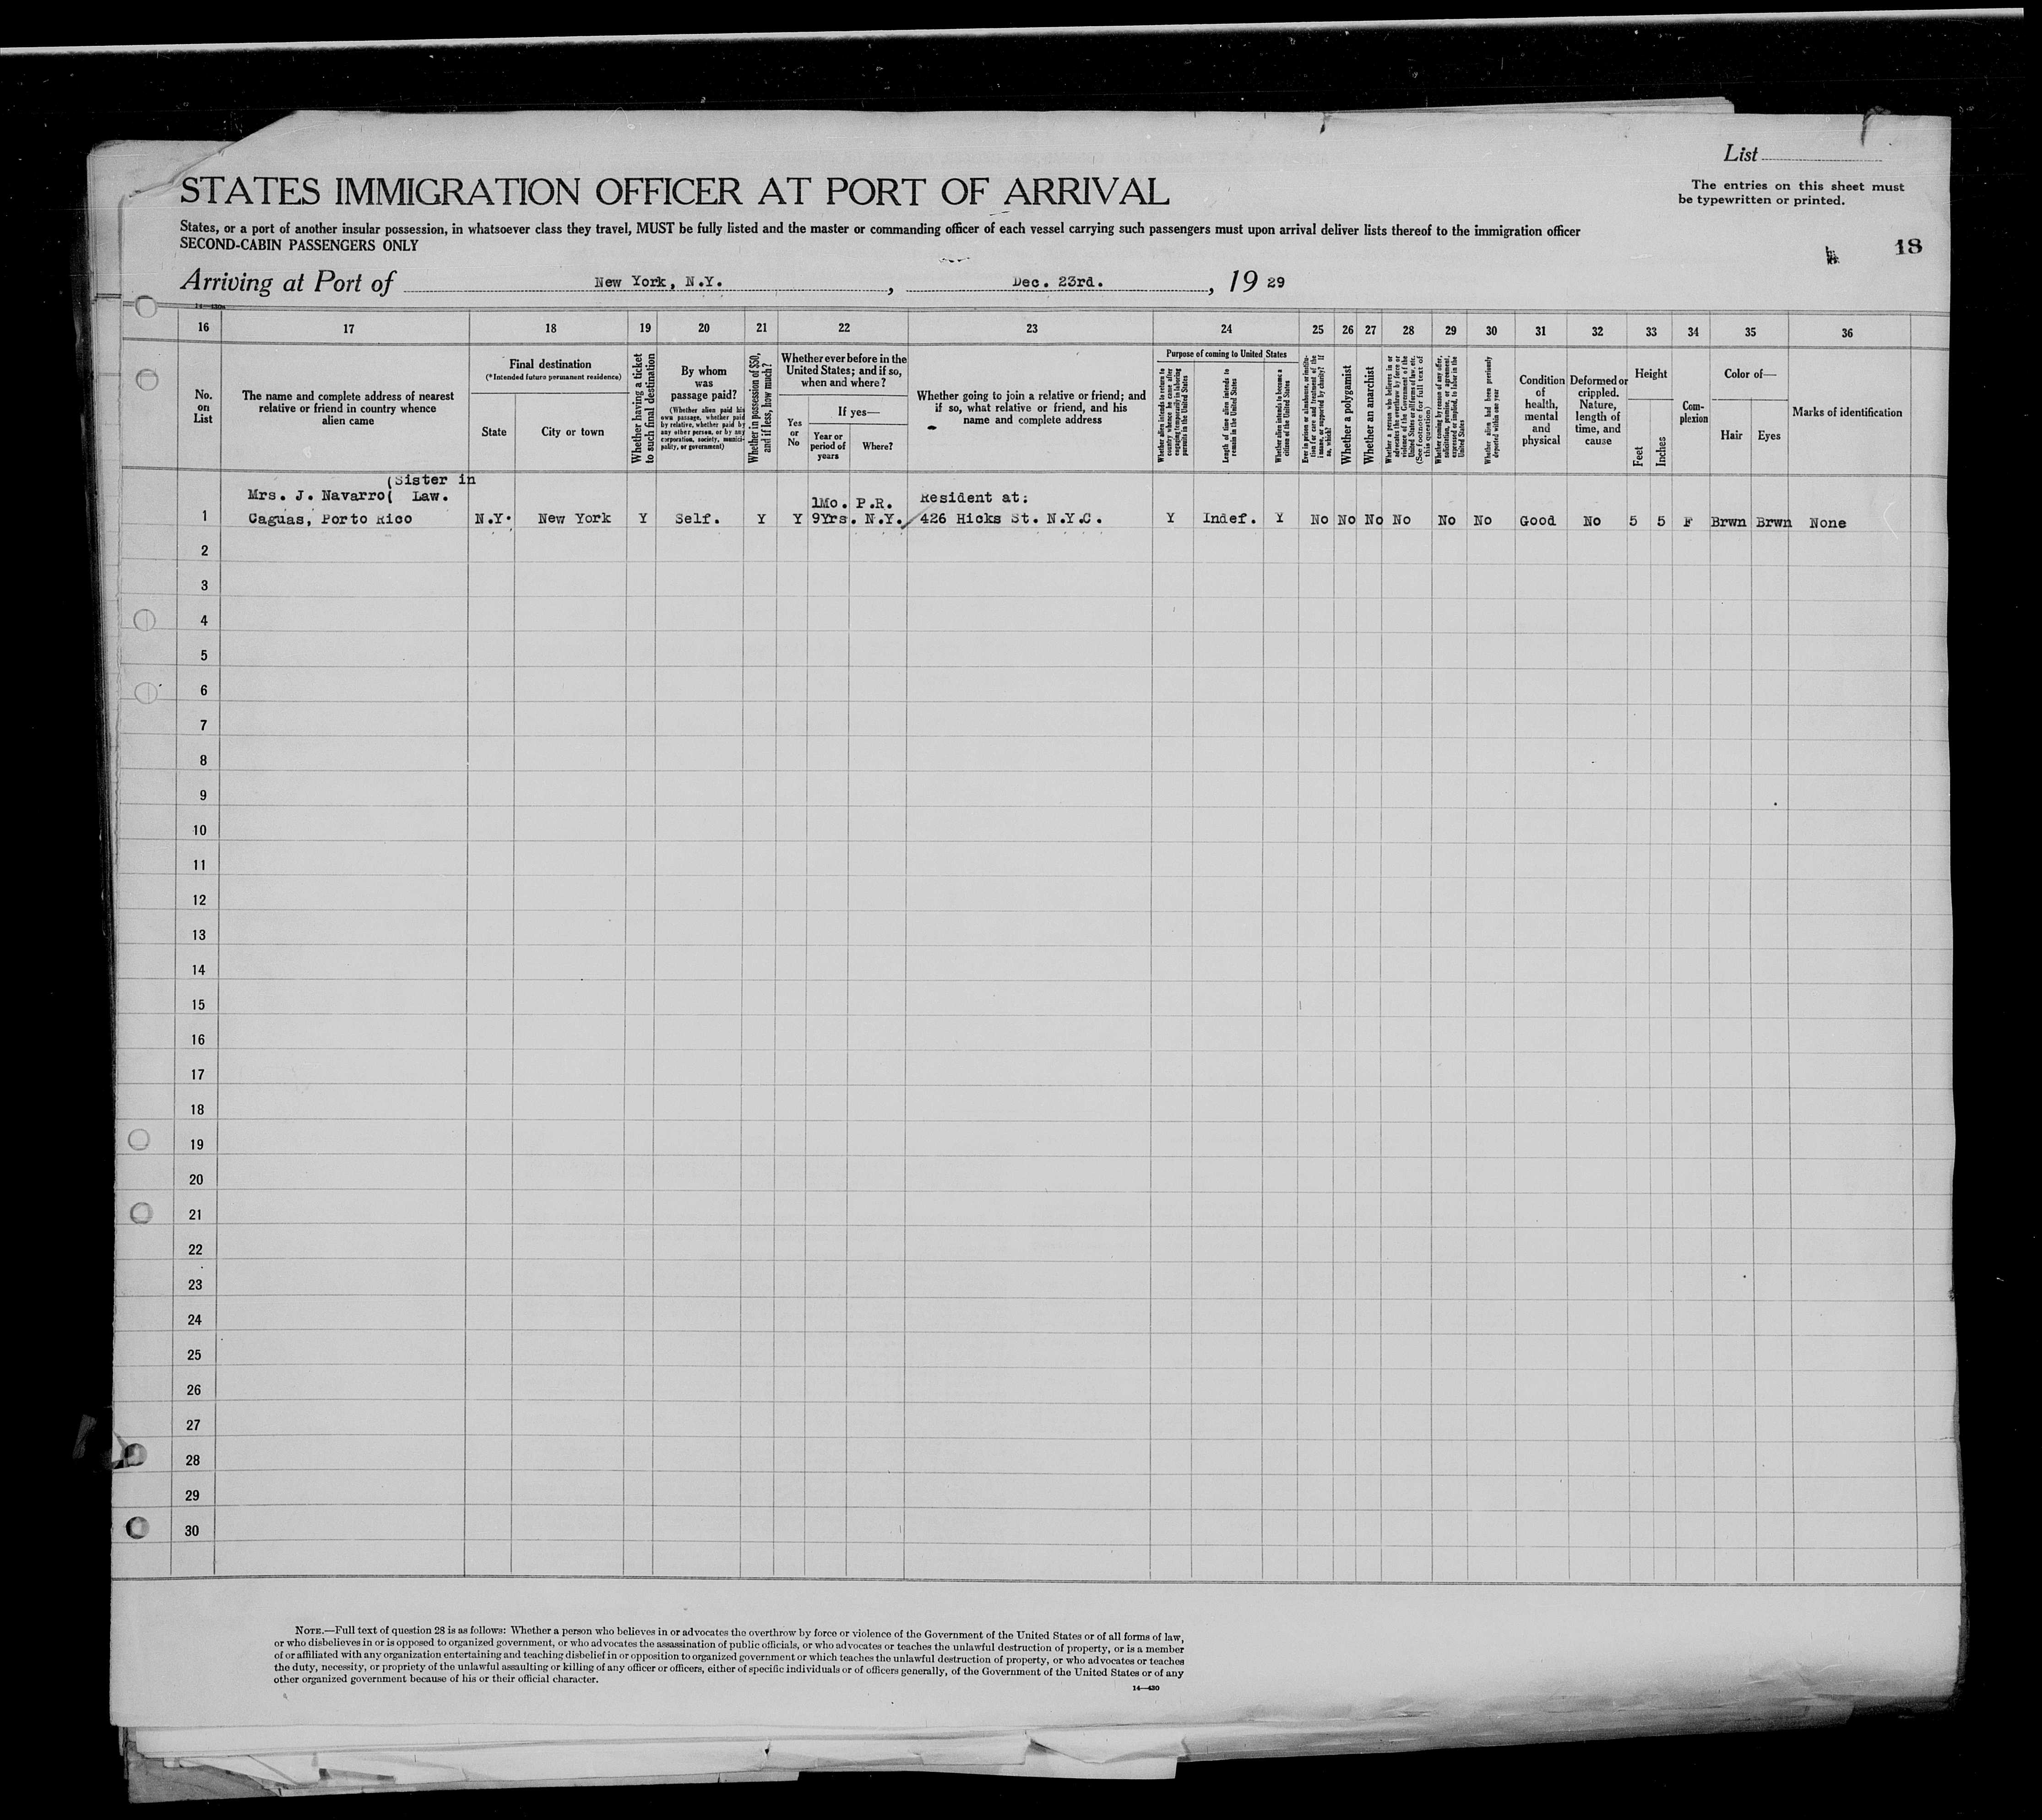 List
STATES IMMIGRATION OFFICER AT PORT OF ARRIVAL
The entries on this sheet must
be typewritten or printed.
States, or a port of another insular possession, in whatsoever class they travel, MUST be fully listed and the master or commanding officer of each vessel carrying such passengers must upon arrival deliver lists thereof to the immigration officer
SECOND-CABIN PASSENGERS ONLY
18
Arriving at Port of New York, N.Y., Dec. 23rd., 19 29
16 17 18 19 20 21 22 23 24 25 26 27 28 29 30 31 32 33 34 35 36
No.
on
List
The name and complete address of nearest
relative or friend in country whence
alien came
Final destination
(*Intended future permanent residence)
State
City or town
Whether having a ticket
to such final destination
By whom
was
passage paid?
(Whether alien paid his
own passage, whether paid
by relative, whether paid by
any other person, or by any
corporation, society, munici-
pality, or government)
Whether in possession of $50,
and if less, how much?
Whether ever before in the
United States; and if so,
when and where?
Yes
or
No
If yes—
Year or
period of
years
Where?
Whether going to join a relative or friend; and
if so, what relative or friend, and his
name and complete address
Purpose of coming to United States
Whether alien intends to return to
country whence he came after
engaging temporarily in laboring
pursuits in the United States
Length of time alien intends to
remain in the United States
Whether alien intends to become a
citizen of the United States
Ever in prison or almshouse, or institu-
tion for care and treatment of the
insane, or supported by charity? If
so, which?
Whether a polygamist
Whether an anarchist
Whether a person who believes in or
advocates the overthrow by force or
violence of the Government of the
United States or all forms of law, etc.
(See footnote for full text of
this question)
Whether coming by reason of any offer,
solicitation, promise, or agreement,
expressed or implied, to labor in the
United States
Whether alien had been previously
deported within one year
Condition
of
health,
mental
and
physical
Deformed or
crippled.
Nature,
length of
time, and
cause
Height
Feet
Inches
Com-
plexion
Color of—
Hair
Eyes
Marks of identification
(Sister in
Mrs. J. Navarro( Law. 1Mo. P.R. Resident at:
1 Caguas, Porto Rico N.Y. New York Y Self. Y Y 9Yrs. N.Y. 426 Hicks St. N.Y.C. Y Indef. Y No No No No No No Good No 5 5 F Brwn Brwn None
2
3
4
5
6
7
8
9
10
11
12
13
14
15
16
17
18
19
20
21
22
23
24
25
26
27
28
29
30
NOTE.—Full text of question 28 is as follows: Whether a person who believes in or advocates the overthrow by force or violence of the Government of the United States or of all forms of law,
or who disbelieves in or is opposed to organized government, or who advocates the assassination of public officials, or who advocates or teaches the unlawful destruction of property, or is a member
of or affiliated with any organization entertaining and teaching disbelief in or opposition to organized government or which teaches the unlawful destruction of property, or who advocates or teaches
the duty, necessity, or propriety of the unlawful assaulting or killing of any officer or officers, either of specific individuals or of officers generally, of the Government of the United States or of any
other organized government because of his or their official character.
14—430